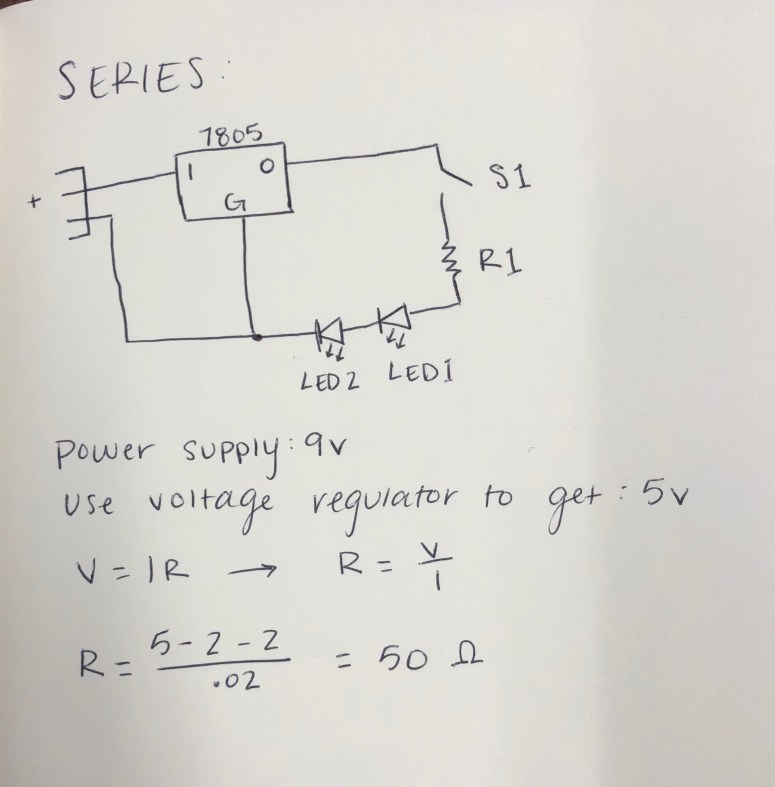 SERIES:
7805
+ I O S1
G
R1
LED2 LED1
Power supply: 9v
use voltage regulator to get: 5v
V = IR → R = V/I
R = 5-2-2/.02 = 50 Ω